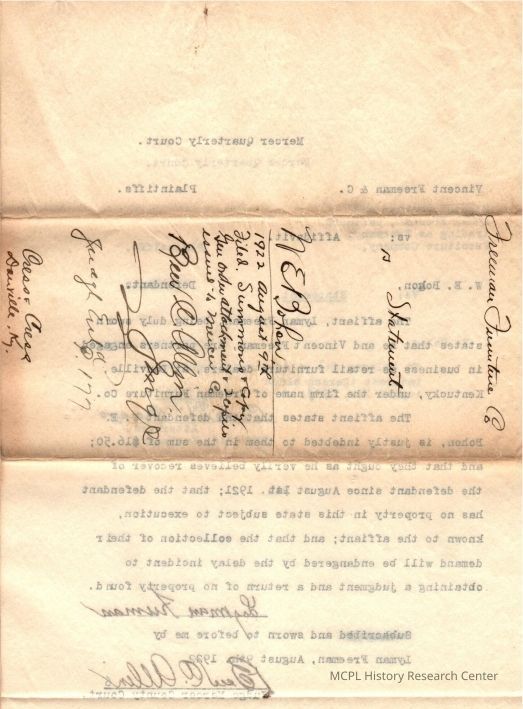 Freeman Furniture Co
vs Statement
W E Bohon
1922 August 9th
Filed. Summons & Copy.
Gen order attachment & copies
issued to Mercer Co
Ben C Allin.
Judge
Mercer Quarterly Court.
Vincent Freeman & C. Plaintiffs.
vs: Affidavit
W. E. Bohon, Defendant.
The affiant, Lyman Freeman being duly sworn
states that he and Vincent Freeman are partners engaged
in business as retail furniture dealers, Danville
Kentucky, under the firm name of Freeman Furniture Co.
The affiant states that the defendant W. E.
Bohon, is justly indebted to them in the sum of $16.50;
and that they ought as he verily believes recover of
the defendant since August 1st. 1921; that the defendant
has no property in this state subject to execution,
known to the affiant; and that the collection of their
demand will be endangered by the delay incident to
obtaining a judgment and a return of no property found.
Lyman Freeman
Subscribed and sworn to before me by
Lyman Freeman, August 9th, 1922
Ben C. Allin
Judge Mercer County Court.
MCPL History Research Center